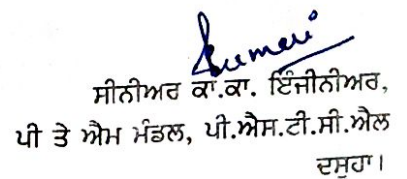 ਸੀਨੀਅਰ ਕਾ.ਕਾ. ਇੰਜੀਨੀਅਰ,
ਪੀ ਤੇ ਐਮ ਮੰਡਲ, ਪੀ.ਐਸ.ਟੀ.ਸੀ.ਐਲ
ਦਸੂਹਾ।